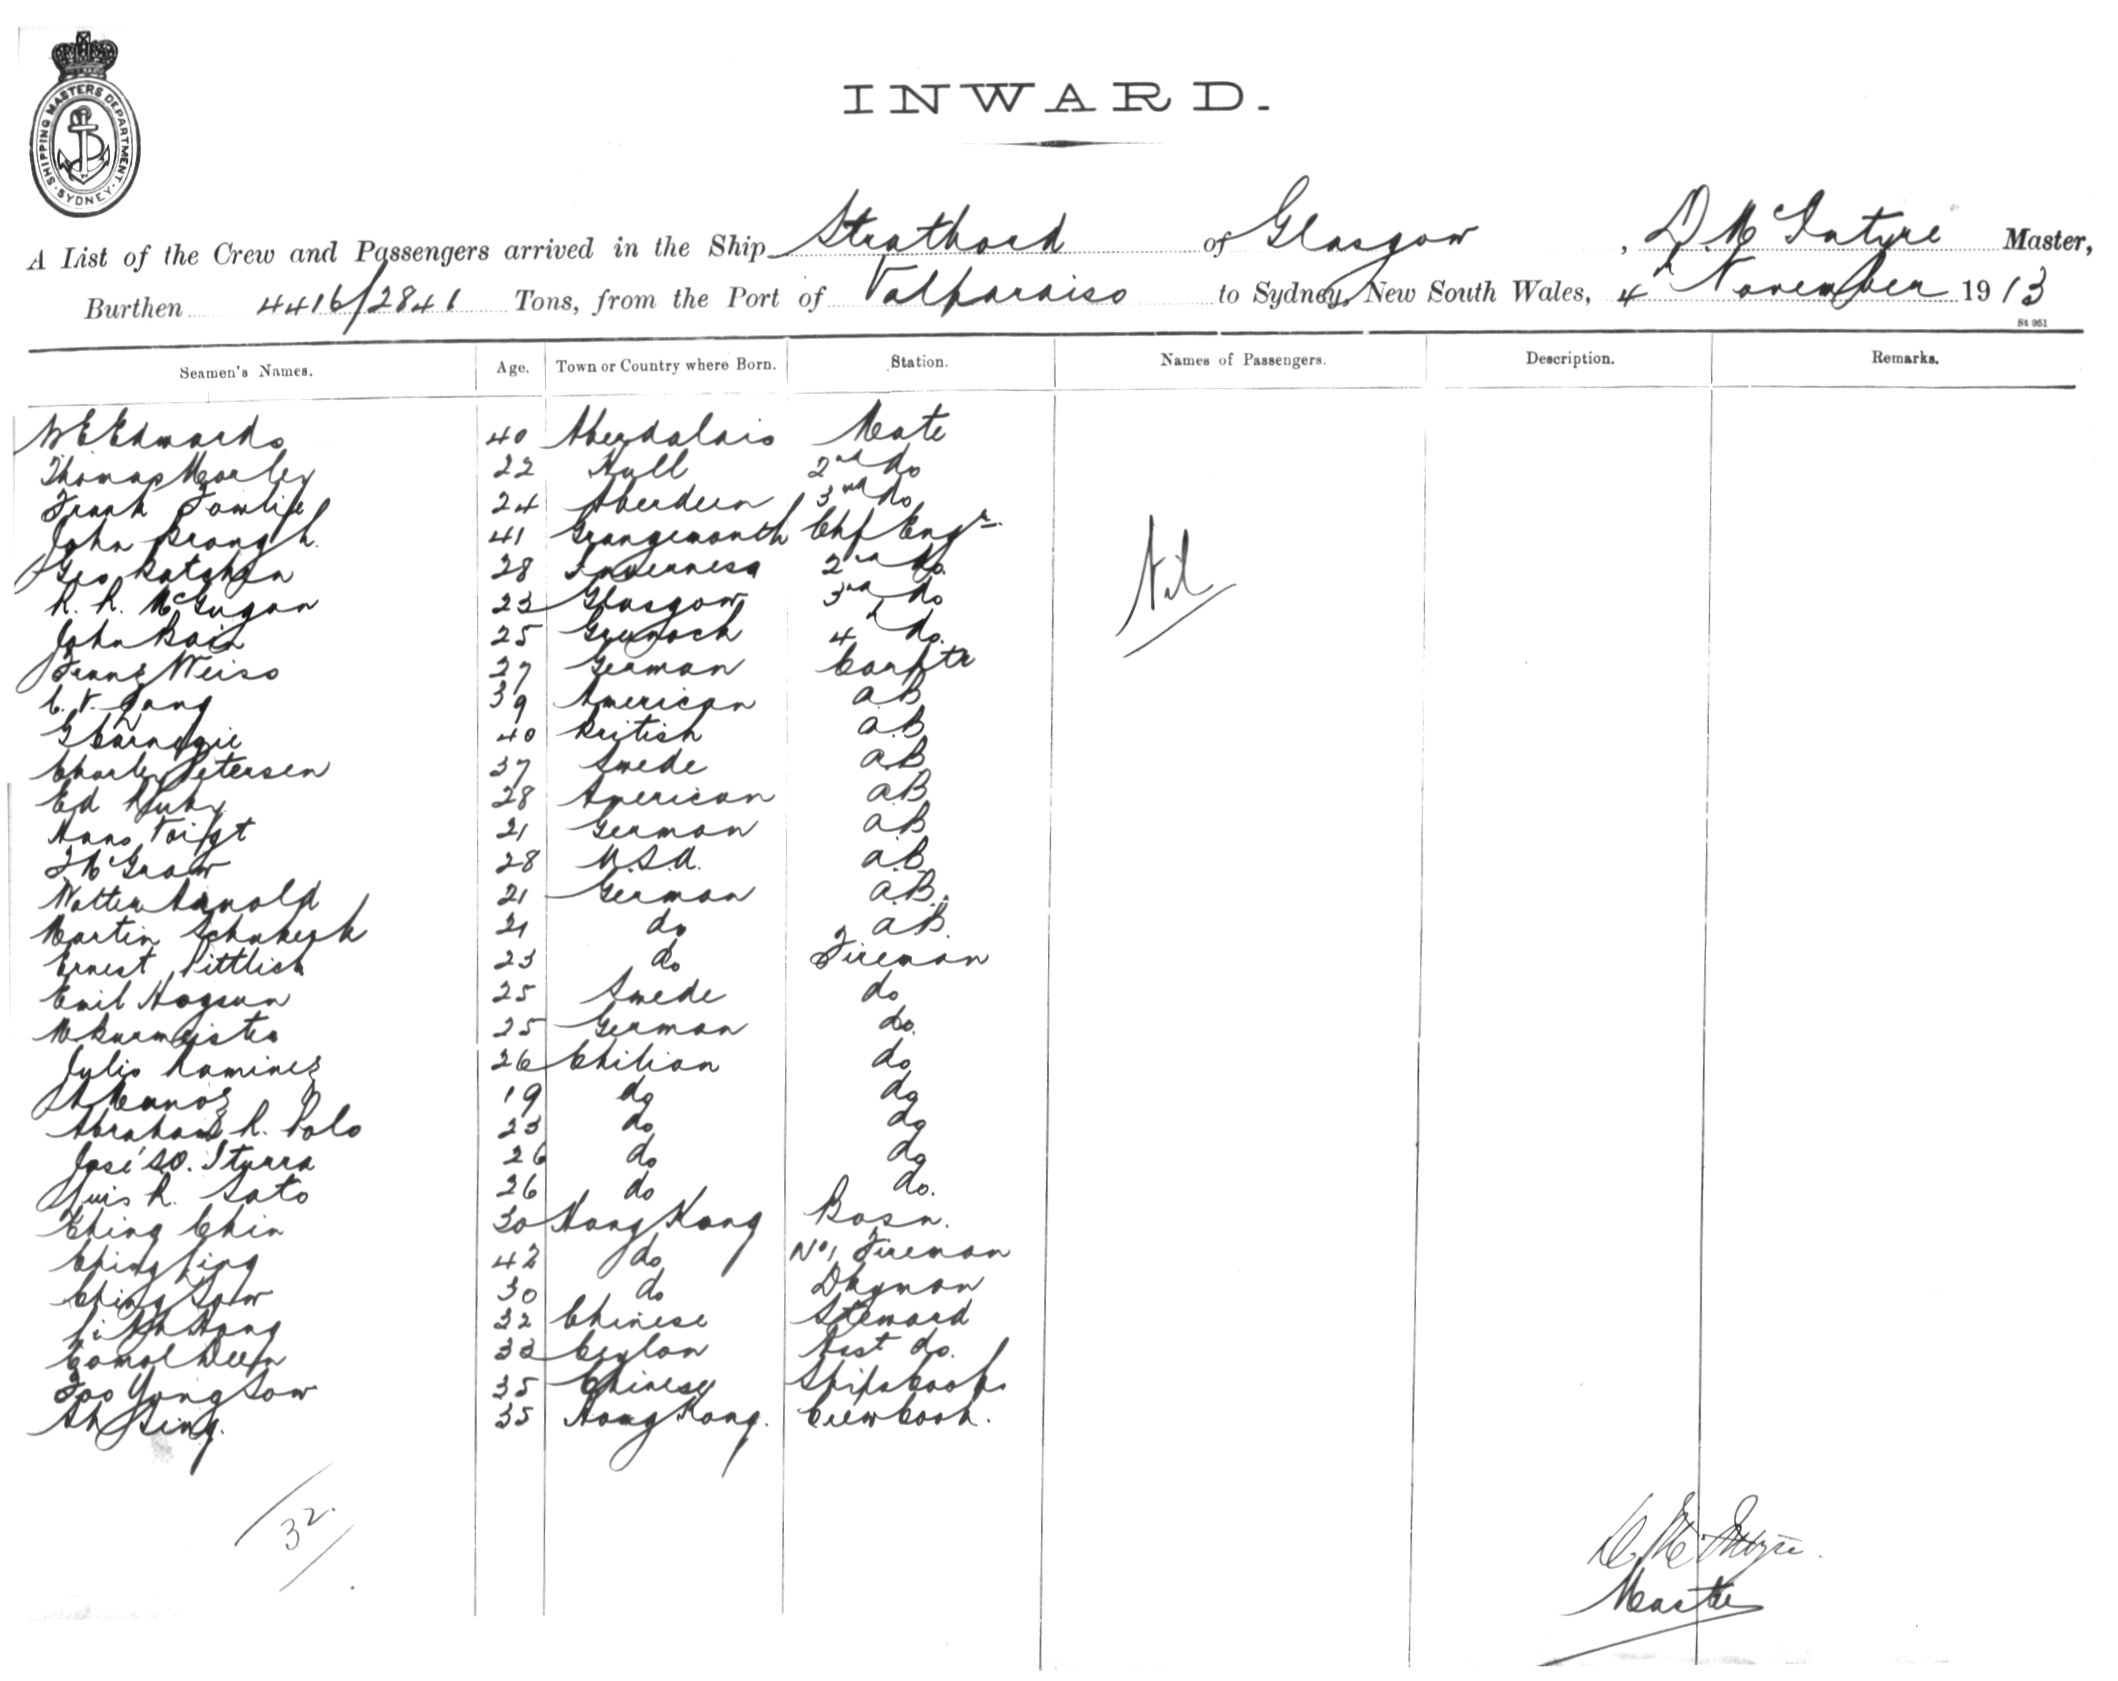 SHIPPING MASTERS DEPARTMENT · SYDNEY ·
INWARD.
A List of the Crew and Passengers arrived in the Ship Strathord of Glasgow, D. McIntyre Master,
Burthen 4416/2841 Tons, from the Port of Valparaiso to Sydney, New South Wales, 4th November 1913
St 961
Seamen's Names. Age. Town or Country where Born. Station. Names of Passengers. Description. Remarks.
W E Edwards 40 Aberdalais Mate
Thomas Morley 22 Hull 2nd do
Frank 24 Aberdeen 3rd do
John Brough. 41 Grangemouth Chf Engr.
Geo 28 Inverness 2nd do.
R. R. McGugan 23 Glasgow 3rd do
John Bain 25 Greenock 4th do.
Franz Weiss 27 German Carptr
C. V. 39 American a.B
G Carnegie 40 British a.B
Charley Petersen 37 Swede a.B
Ed Ruby 28 American a.B
Hans Voigt 21 German a.B
J McGraw 28 U.S.A. a.B.
Walter Arnold 21 German a.B.
Martin 21 do a.B.
Ernest Pittlich 23 do Fireman
Emil Hogsun 25 Swede do
M Burmeister 25 German do.
Julio Ramirez 26 Chilian do
19 do do
Abraham R. Polo 23 do do
José D. Iturra 26 do do
Luis R. Soto 26 do do.
Ching Chin 30 Hong Kong Bosn.
Ching Ling 42 do No 1 Fireman
Ching Sow 30 do Dkyman
Li Ah Hong 32 Chinese Steward
Comol Deen 33 Ceylon Asst do.
Foo Yung Sow 35 Chinese Ships Cook
Ah Sing. 35 Hong Kong. Crew Cook.
Nil
32.
D. McIntyre.
Master